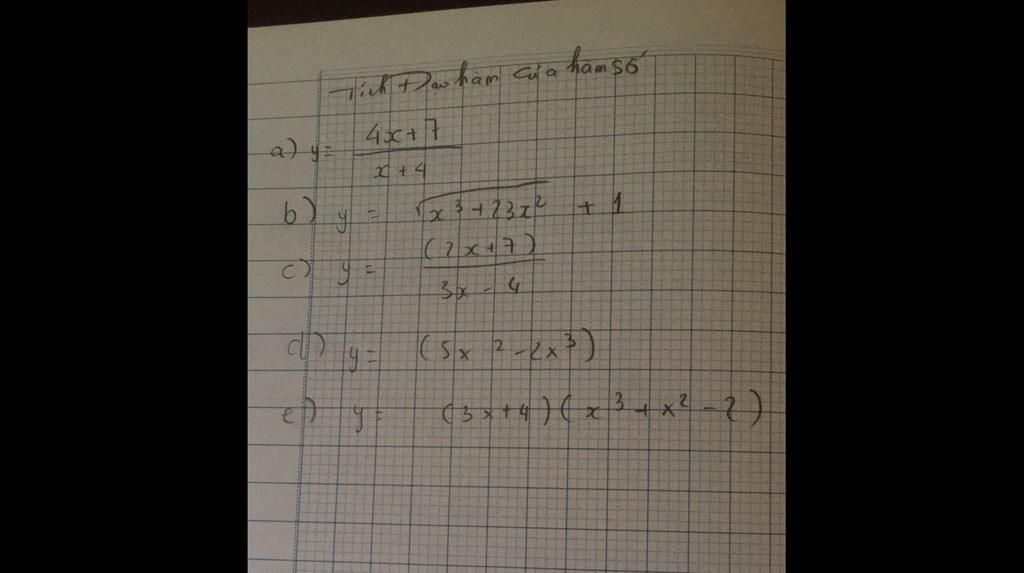 Tính Đạo hàm của hàm số
a) y = \frac{4x+7}{x+4}
b) y = \sqrt{x^3+23x^2} + 1
c) y = \frac{(2x+7)}{3x-4}
d) y = (5x^2-2x^3)
e) y = (3x+4)(x^3+x^2-2)